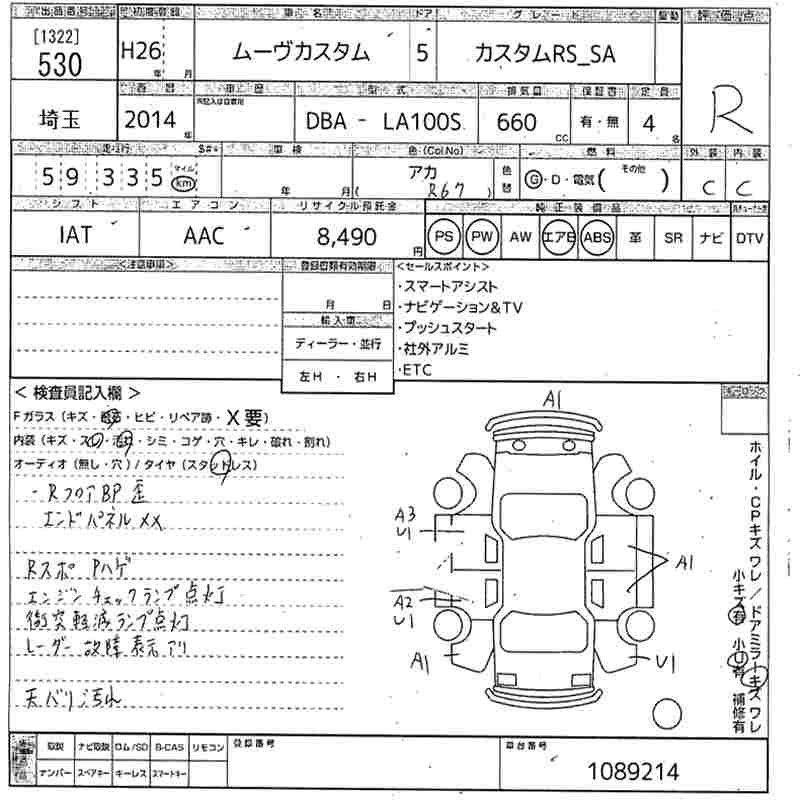 出品番号 初度登録 車名 ドア グレード 駆動 評価点
[1322]
530 H26 年 月 ムーヴカスタム 5 カスタムRS_SA R
車歴 型式 排気量 保証書 定員
埼玉 2014 年 DBA - LA100S 660 cc 有・無 4 名
走行 S#* 車検 色(Col No) 燃料 外装 内装
59,335 マイル km 年 月 アカ ( R67 ) 色替 G・D・電気( その他 ) C C
シフト エアコン リサイクル預託金 純正装備品
IAT AAC 8,490 円 PS PW AW エアB ABS 革 SR ナビ DTV
<注意車両> 登録書類有効期限 <セールスポイント>
・スマートアシスト
月 日 ・ナビゲーション&TV
輸入車 ・プッシュスタート
ディーラー・並行 ・社外アルミ
左H ・ 右H ・ETC
< 検査員記入欄 >
Fガラス (キズ・飛石・ヒビ・リペア跡・X要)
内装 (キズ・スレ・汚れ・シミ・コゲ・穴・キレ・破れ・割れ)
オーディオ (無し・穴) / タイヤ (スタッドレス)
- RフロアBP 歪
エンドパネル XX
Rスポ Pハゲ
エンジンチェックランプ点灯
衝突軽減ランプ点灯
レーダー故障表示アリ
天バリ汚れ
A1
A3
U1
A1
A2
U1
A1 U1
ホイル・CPキズ ワレ / ドアミラーキズ ワレ
小キズ有 小U有 補修有
取説 ナビ取説 ロム/SD B-CAS リモコン 登録番号 車台番号
ナンバー スペアキー キーレス スマートキー 1089214